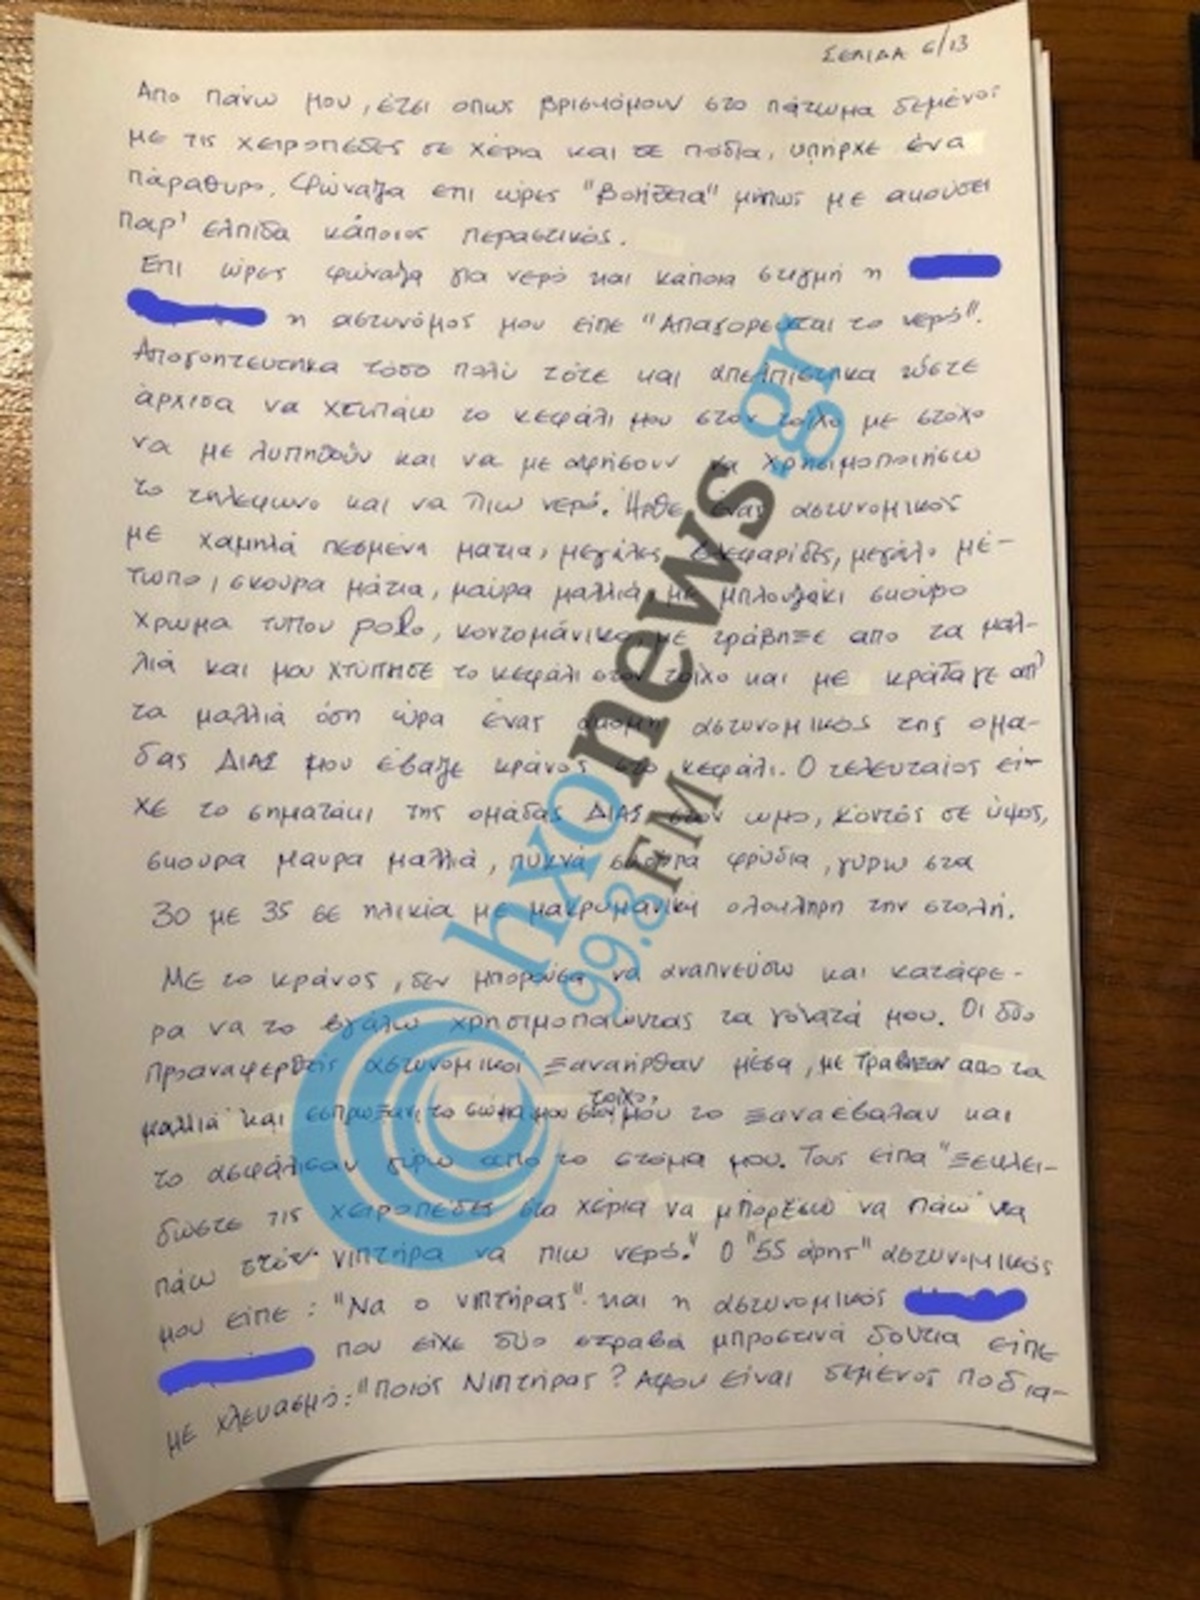 ΣΕΛΙΔΑ 6/13
Απο πάνω μου, έτσι οπως βρισκόμουν στο πάτωμα δεμένος
με τις χειροπέδες σε χέρια και σε πόδια, υπήρχε ένα
παράθυρο. Φώναζα επι ώρες "βοήθεια" μήπως με ακούσει
παρ' ελπίδα κάποιος περαστικός.
Επι ώρες φώναζα για νερό και κάποια στιγμή η
η αστυνόμος μου είπε "Απαγορεύεται το νερό".
Απογοητευτηκα τόσο πολύ τότε και απελπιστηκα ώστε
άρχισα να χτυπάω το κεφάλι μου στον τοίχο με στόχο
να με λυπηθούν και να με αφήσουν να χρησιμοποιήσω
το τηλεφωνο και να πιω νερό. Ηρθε ένας αστυνομικός
με χαμηλά πεσμένα ματια, μεγάλες βλεφαρίδες, μεγάλο μέ-
τωπο, σκουρα μάτια, μαύρα μαλλιά, με μπλουζάκι σκούρο
χρωμα τυπου polo, κοντομάνικο, με τράβηξε απο τα μαλ-
λιά και μου χτύπησε το κεφάλι στον τοίχο και με κράταγε απ'
τα μαλλιά όση ώρα ένας ακομη αστυνομικός της ομα-
δας ΔΙΑΣ μου έβαζε κράνος στο κεφάλι. Ο τελευταίος εί-
χε το σηματάκι της ομάδας ΔΙΑΣ στον ωμο, κοντός σε ύψος,
σκουρα μαυρα μαλλιά, πυκνά σκούρα φρύδια, γύρω στα
30 με 35 σε ηλικία με μακρυμάνικη ολοκληρη την στολή.
Με το κράνος, δεν μπορούσα να αναπνεύσω και κατάφε-
ρα να το βγάλω χρησιμοποιώντας τα γόνατά μου. Οι δύο
προαναφερθείς αστυνομικοί ξαναηρθαν μέσα, με τραβηξαν απο τα
μαλλιά και εσπρωξαν το σώμα μου στον τοίχο, μου το ξαναέβαλαν και
το ασφάλισαν γύρω απο το στόμα μου. Τους είπα "Ξεκλει-
δώστε τις χειροπέδες στα χέρια να μπορέσω να πάω να
πάω στον νιπτήρα να πιω νερό." Ο "55 άρης" αστυνομικός
μου είπε: "Να ο νιπτήρας". και η αστυνομικός
που είχε δύο στραβά μπροστινά δόντια είπε
με χλευασμό: "Ποιός Νιπτήρας? Αφου είναι δεμένος ποδια-
hxonews.gr
99.8 FM